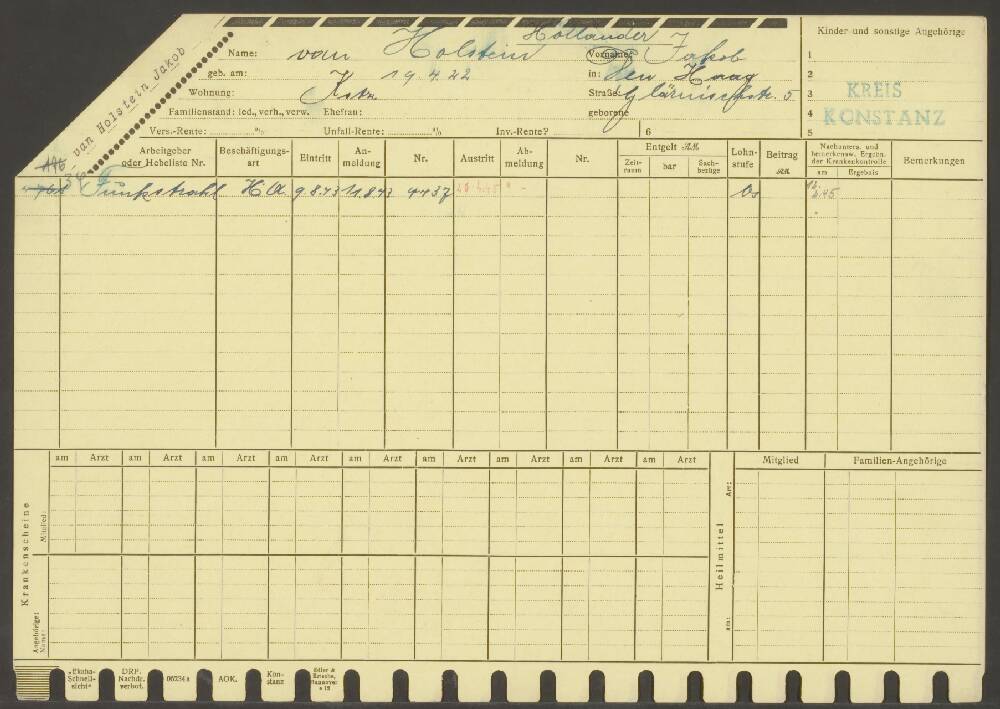 van Holstein Jakob
Holländer
Name: van Holstein Vorname: Jakob
geb. am: 19.4.22 in: Den Haag
Wohnung: Kstz. Straße: Glärnischstr. 5
Familienstand: led., verh., verw. Ehefrau: geborene
Vers.-Rente: % Unfall-Rente: % Inv.-Rente? 6
Kinder und sonstige Angehörige
1
2
3
4
5
KREIS
KONSTANZ
Arbeitgeber oder Hebeliste Nr. Beschäftigungs-art Eintritt An-meldung Nr. Austritt Ab-meldung Nr. Entgelt RM Zeit-raum bar Sach-bezüge Lohn-stufe Beitrag RM Nachunters. und bemerkensw. Ergebn. der Krankenkontrolle am Ergebnis Bemerkungen
Funkstrahl H.A. 9.8.43 11.8.43 4437
am Arzt am Arzt am Arzt am Arzt am Arzt am Arzt am Arzt am Arzt am Arzt
Krankenscheine
Mitglied:
Angehörige:
Name:
Heilmittel
Art:
am:
Mitglied Familien-Angehörige
"Ekaha-Schnell-sicht" DRP. Nachdr. verbot. 06234a AOK. Kon-stanz